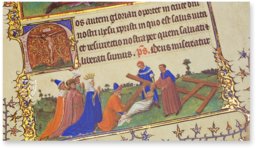 os autem gloriari oportet in cruce dni
nostri ihu xpisti in quo est salus vita
et resurrectio nostra per quem saluati et
liberati sumus. ps. Deus misereatur